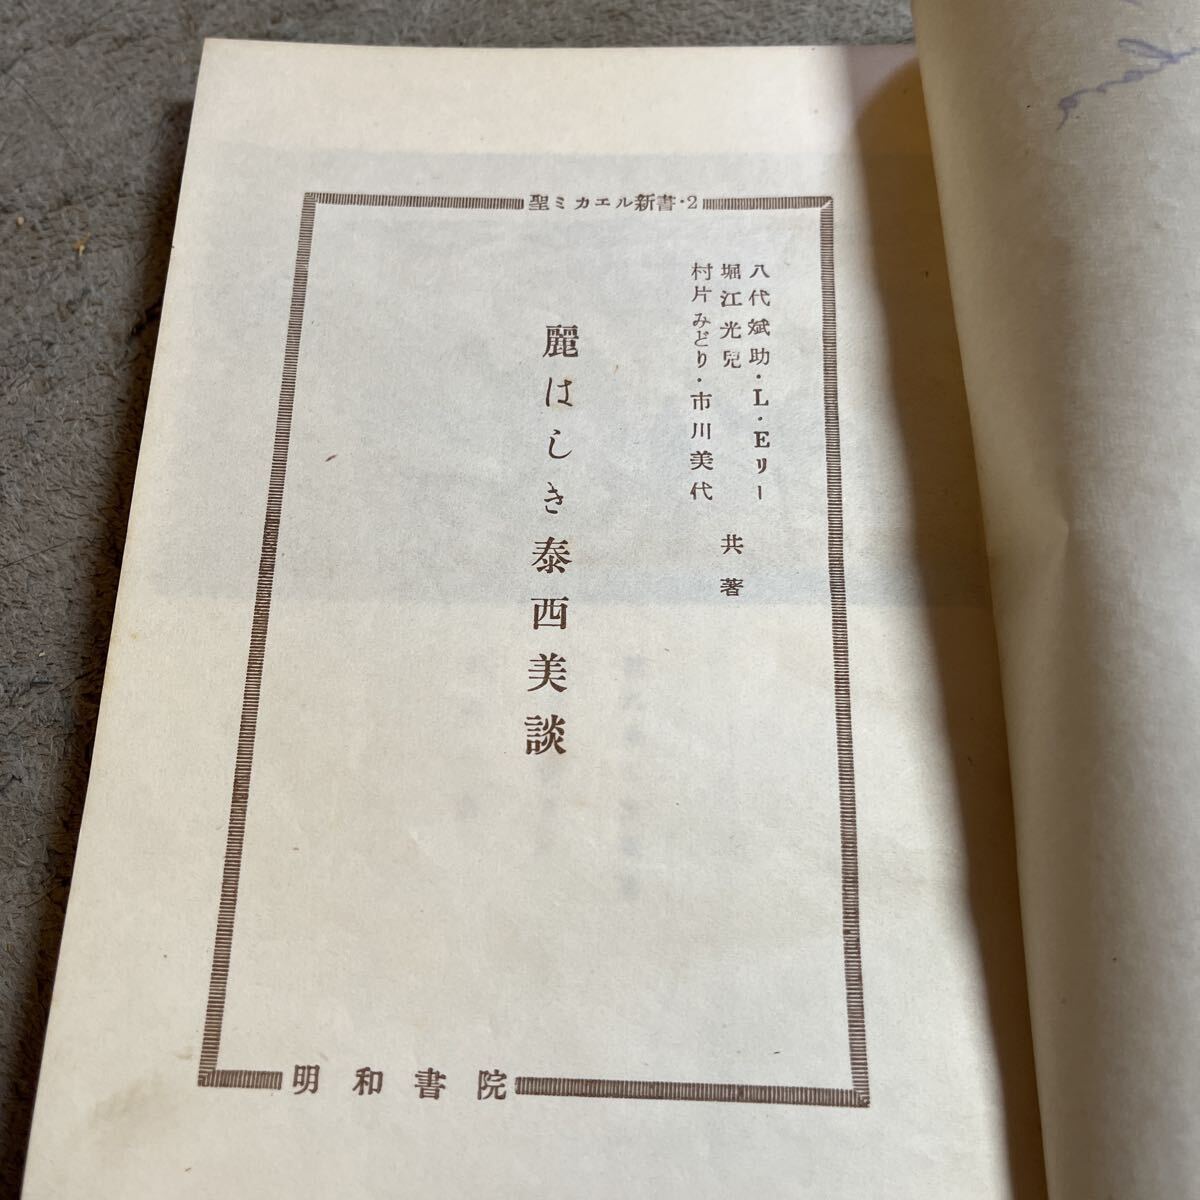 聖ミカエル新書・2
八代斌助・L・Eリー
堀江光兒
村片みどり・市川美代
共著
麗はしき泰西美談
明和書院